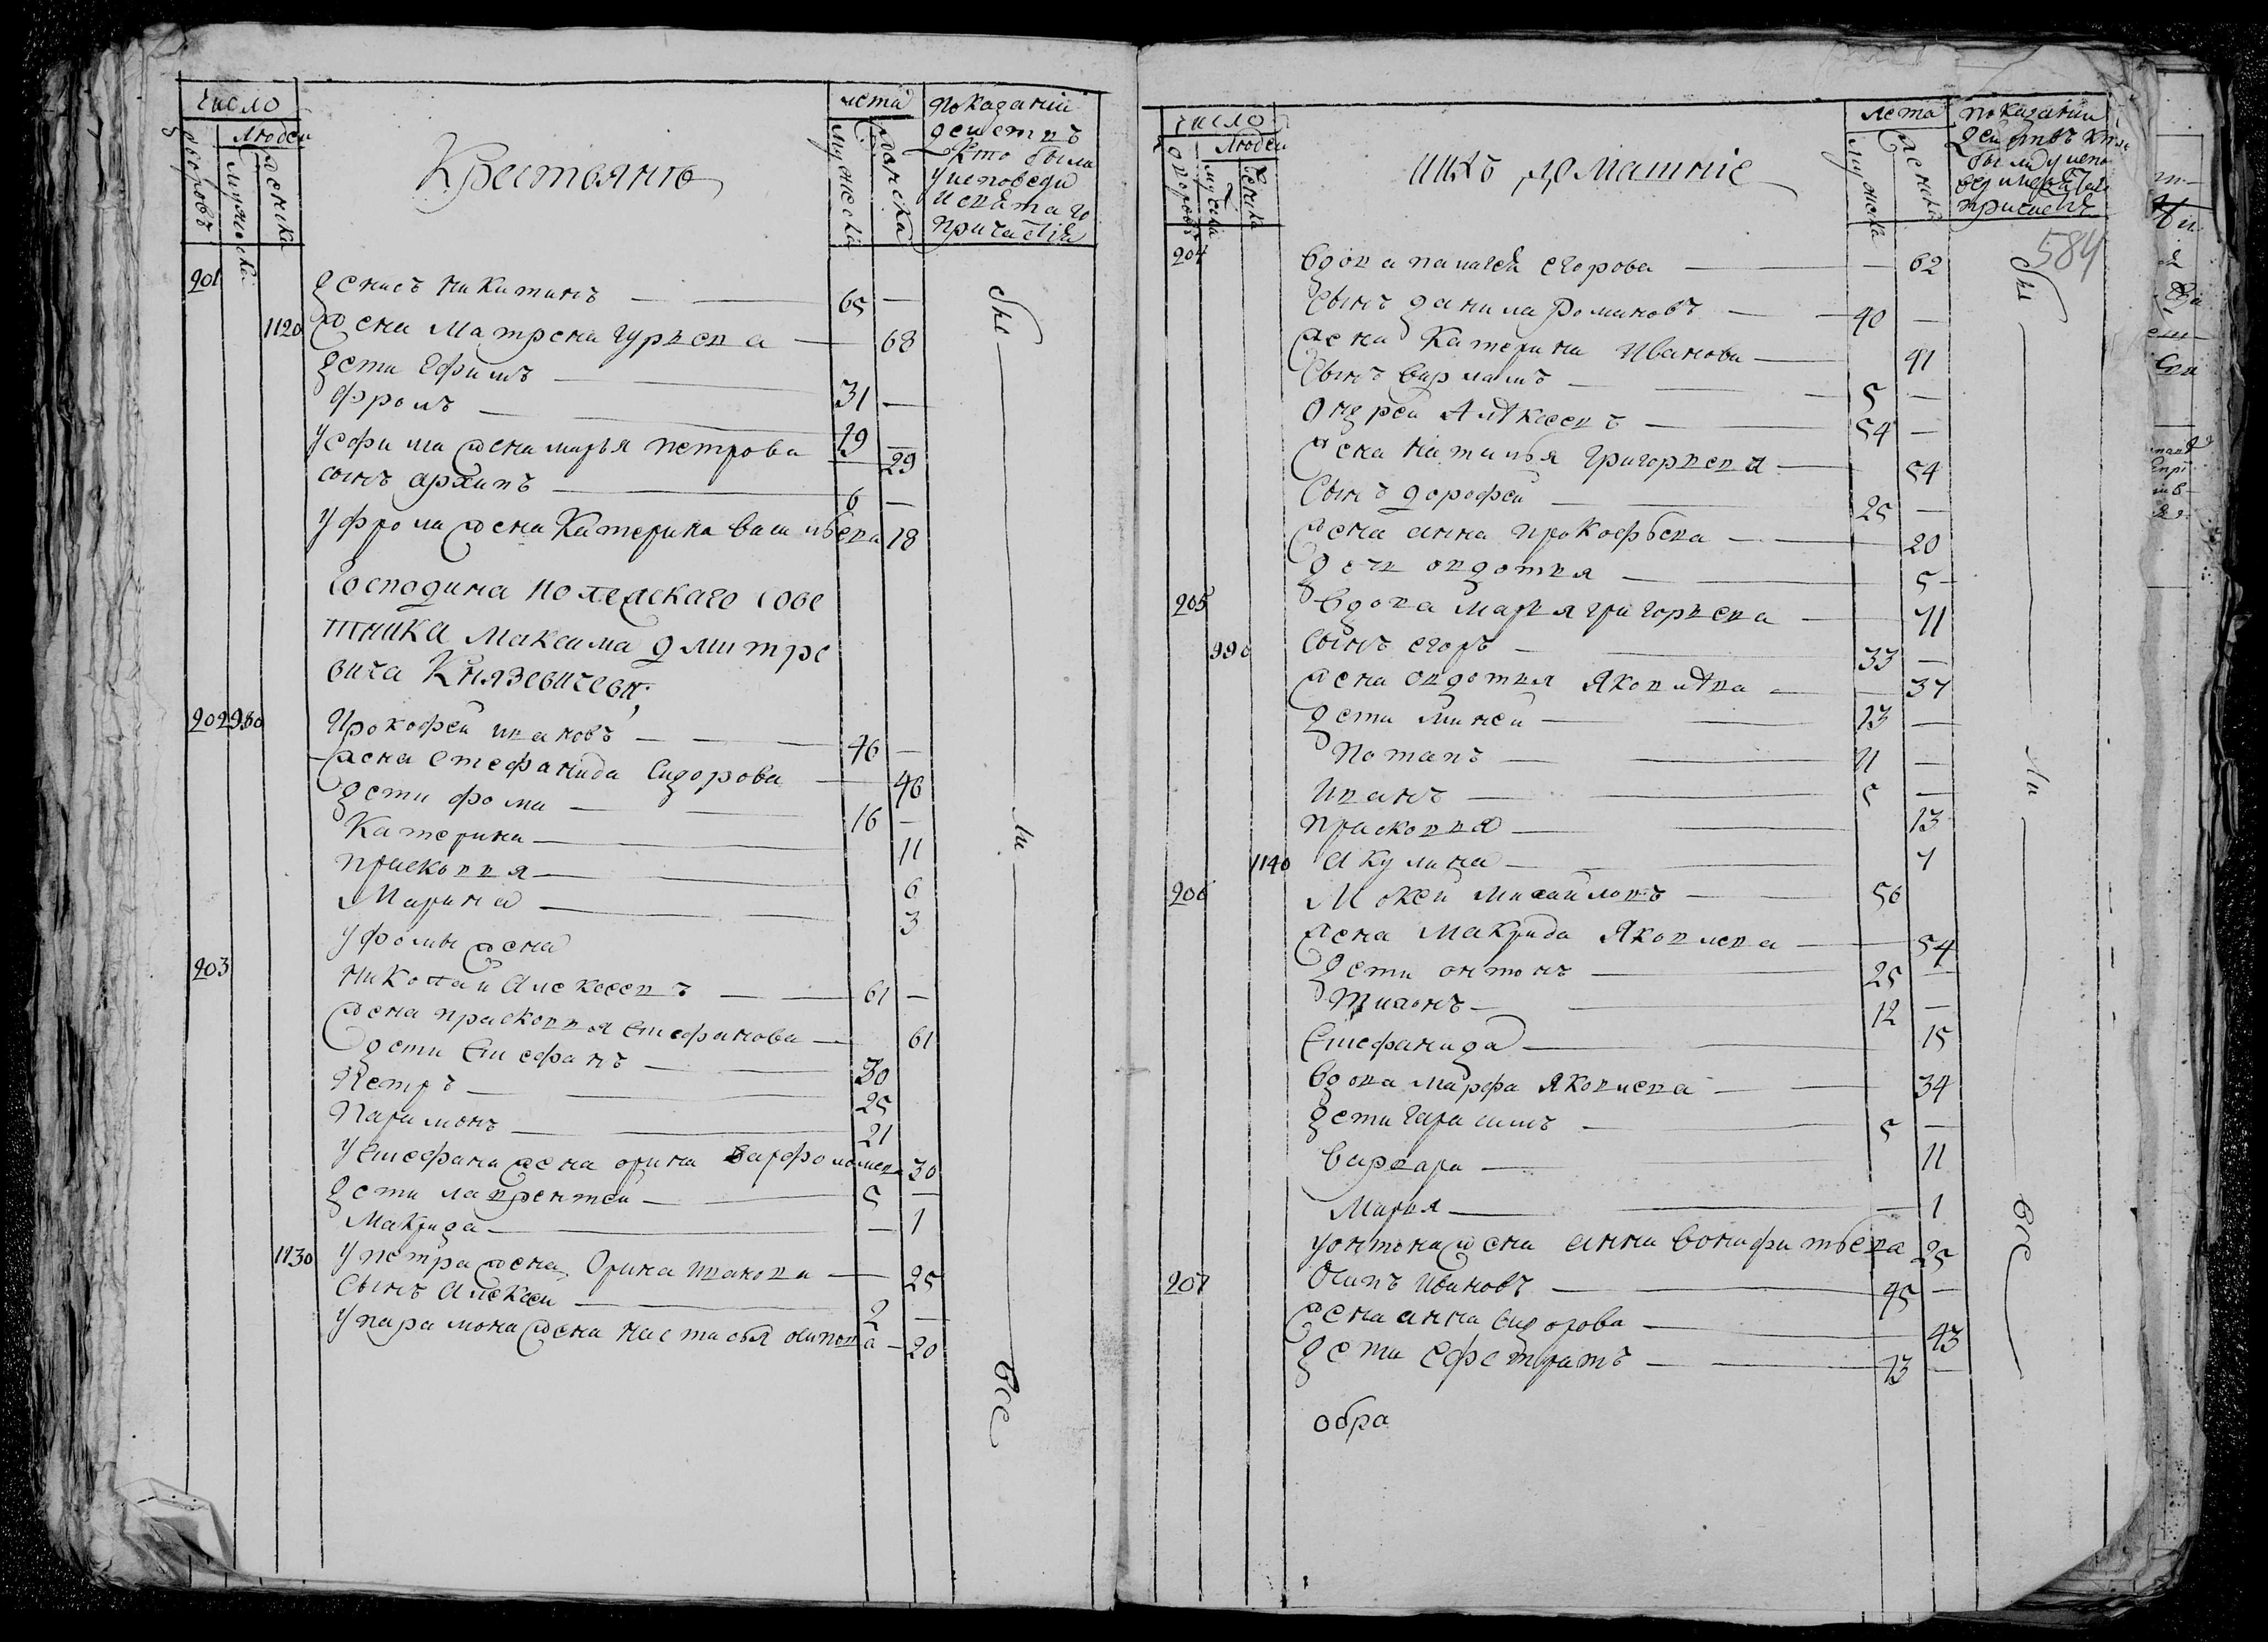 число
Людей
дворовъ
мужеска
женска
Крестьяне
лета
мужеска
женска
показаніи
действъ
кто были
у исповеди
и святаго
причастія
201 Денисъ Никитинъ — 65 —
1120 жена Матрена Гурьева — 68
дети Ефимъ — 31 —
Фролъ — 19 —
у Ефима жена Марья Петрова 29
сынъ Архипъ — 6 —
у Фрола жена Катерина Васильева 18
Господина
Максима Дмитре
вича Князевичеви;
202 980 Прокофей Ивановъ — 46 —
жена Стефанида Сидорова — 46
дети Фома — 16 —
Катерина — 11
Прасковья — 6
Марина — 3
у Фомы жена
203 Николай Алексеевъ — 61 —
жена Прасковья Стефанова — 61
дети Стефанъ — 30
Петръ — 25
Парамонъ — 21
у Стефана жена Орина Варфоломеева 30
дети Лаврентей — 5 —
Макрида — 1
1130 у Петра жена Орина Иванова — 25
сынъ Алексей — 2 —
у Парамона жена Настасья Осипова — 20
Бы
ли
все
число
Людей
дворовъ
мужеска
женска
ихъ домашніе
лета
мужеска
женска
показаніи
действъ кто
были у испо
причастія
584
204 вдова Палагея Егорова — 62
сынъ Данила Романовъ — 40 —
жена Катерина Иванова — 41
сынъ Варламъ — 5 —
Ондрей Алѣксеевъ — 54 —
жена Наталья Григорьева — 54
сынъ Дорофей — 25 —
жена Анна Прокофьева — 20
дочь Овдотья — 5
205 вдова Марья Григорьева — 71
990 сынъ Егоръ — 33 —
жена Овдотья Яковлѣва — 37
дети Миней — 13 —
Потапъ — 11 —
Иванъ — 5 —
Прасковья — 13
1140 Акулина — 7
206 Мокей Михайловъ — 56
жена Макрида Яковлева — 54
дети Онтонъ — 25 —
Тихонъ — 12 —
Стефанида — 15
вдова Марфа Яковлева — 34
дети Гарасимъ — 5 —
Варвара — 11
Марья — 1
у Онтона жена Анна Вонифатьева 25
207 Осипъ Ивановъ — 45 —
жена Анна Сидорова — 43
дети Ефстратъ — 13 —
обра
Бы
ли
все